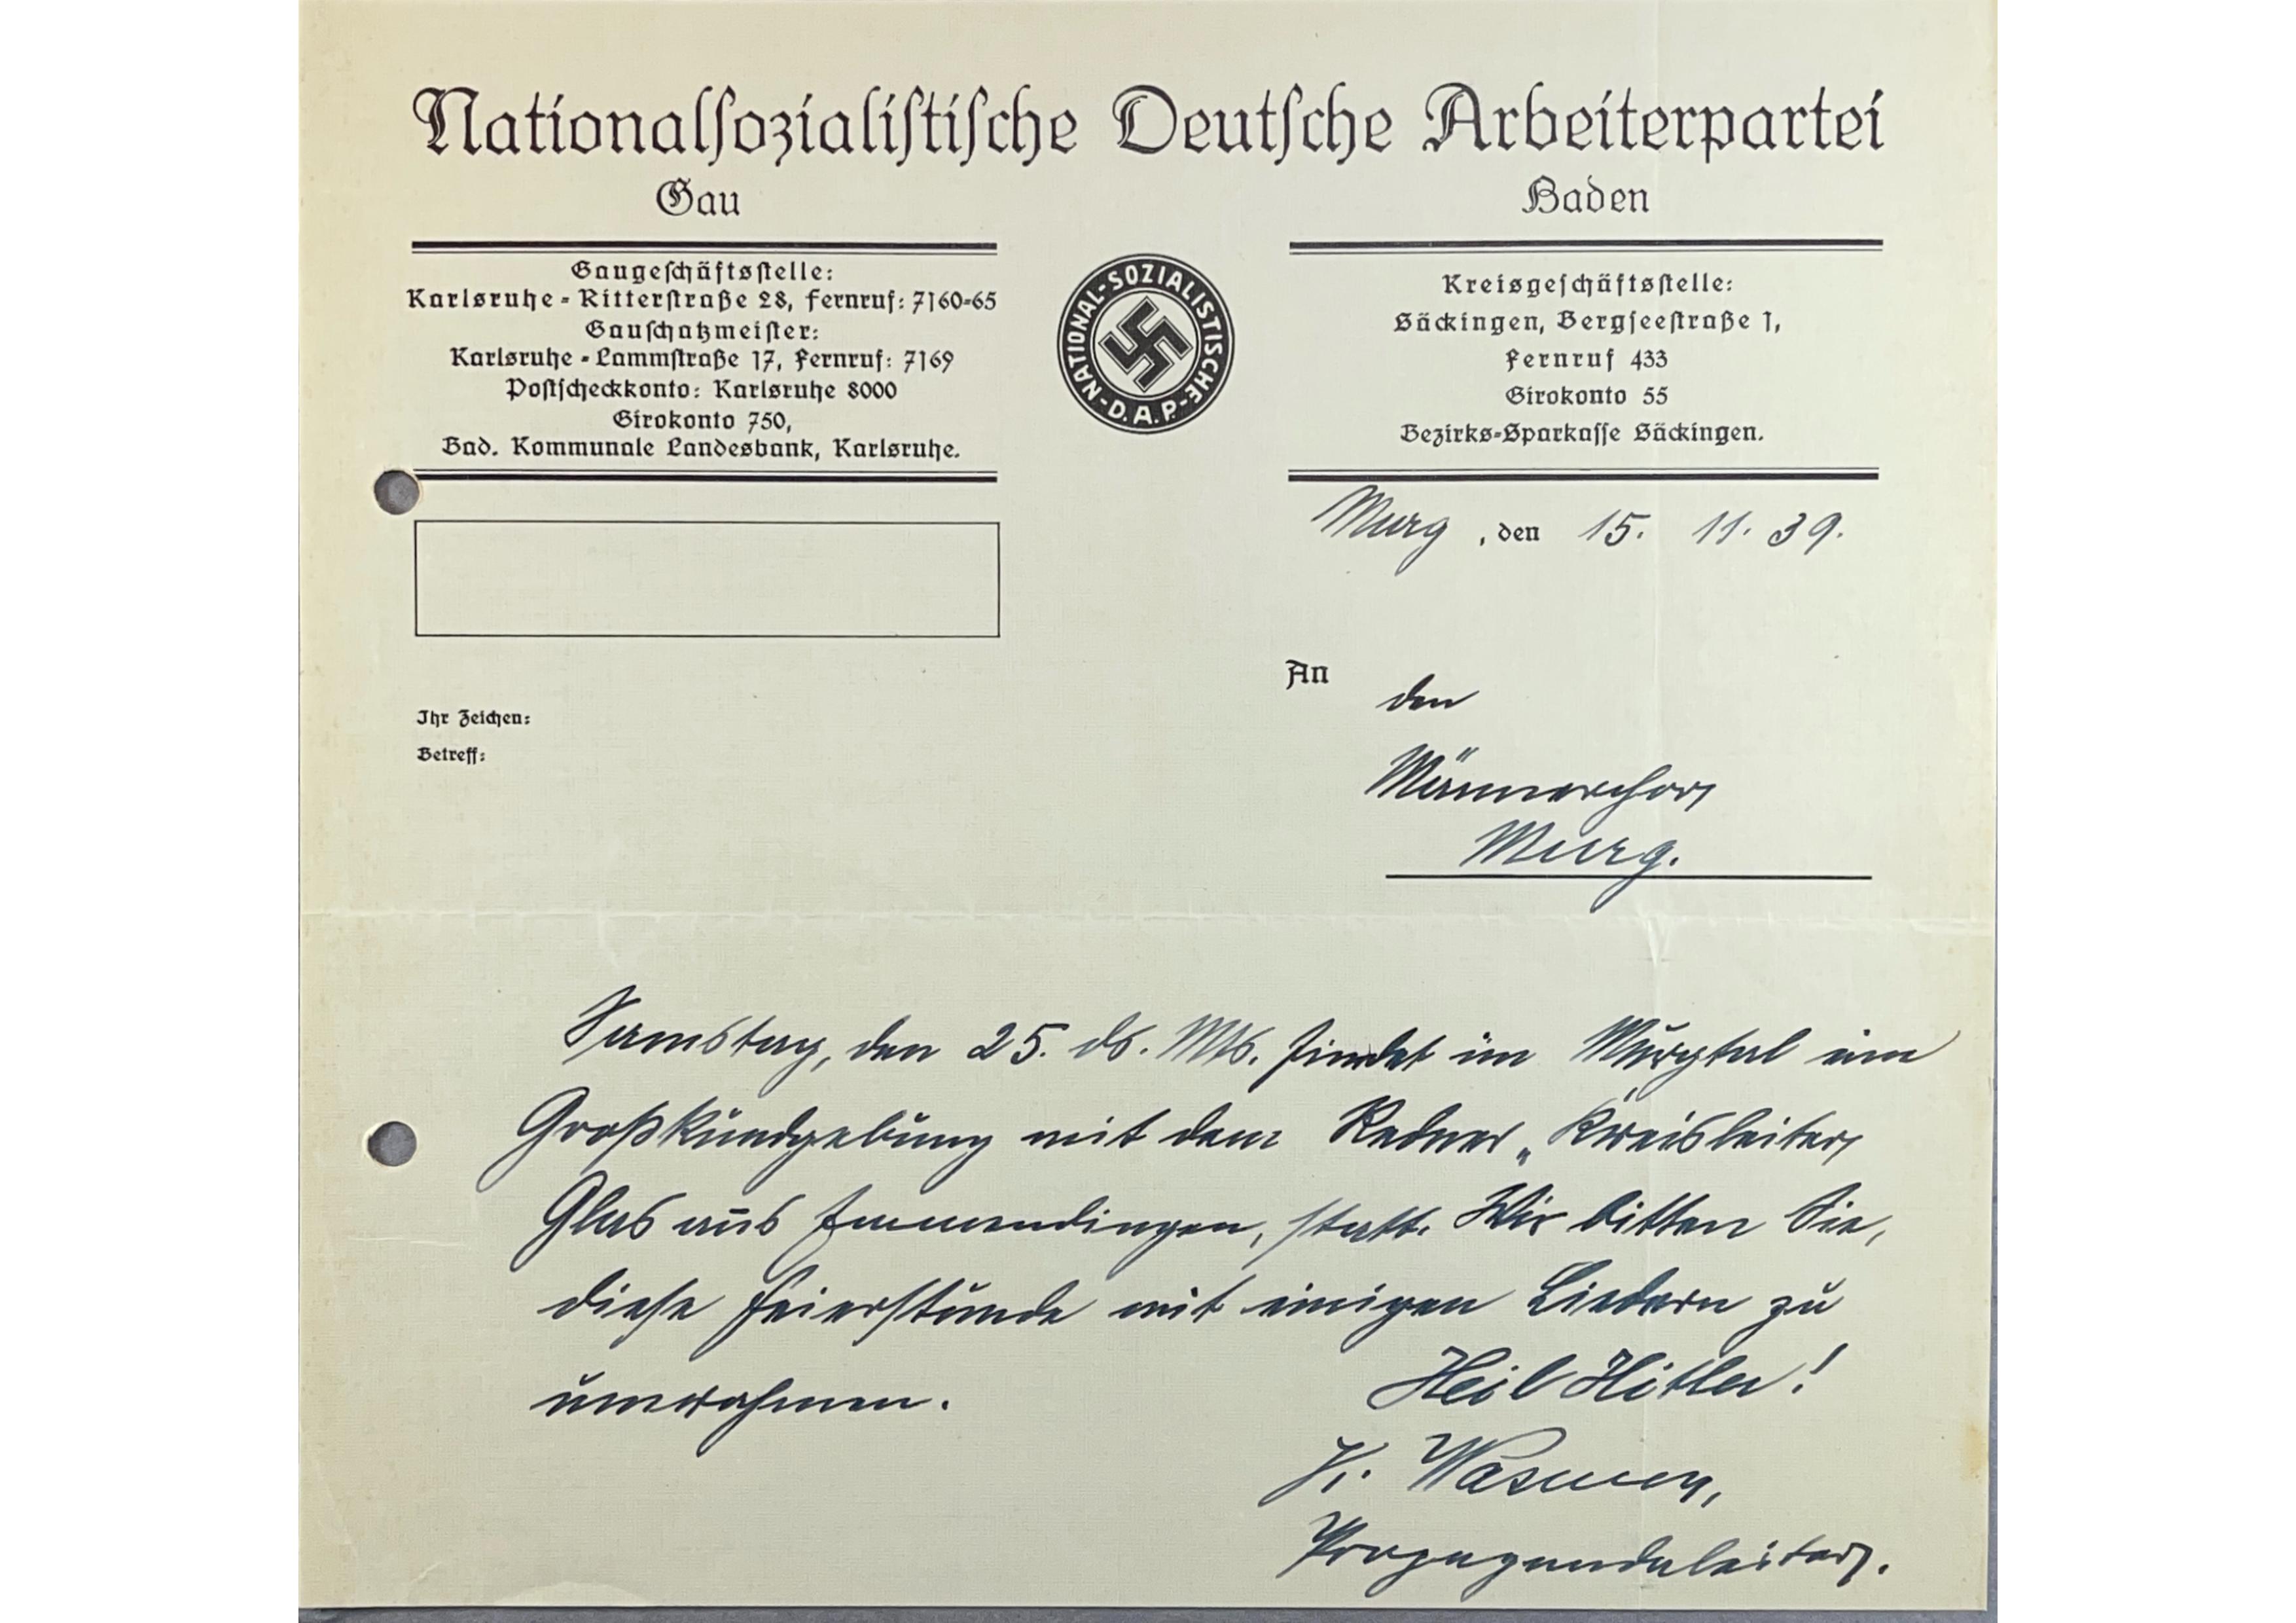 Nationalsozialistische Deutsche Arbeiterpartei
Gau Baden
Gaugeschäftsstelle:
Karlsruhe - Ritterstraße 28, Fernruf: 7160-65
Gauschatzmeister:
Karlsruhe - Lammstraße 17, Fernruf: 7169
Postscheckkonto: Karlsruhe 8000
Girokonto 750,
Bad. Kommunale Landesbank, Karlsruhe.
NATIONAL-SOZIALISTISCHE-D.A.P.-
Kreisgeschäftsstelle:
Säckingen, Bergseestraße 1,
Fernruf 433
Girokonto 55
Bezirks-Sparkasse Säckingen.
Murg, den 15. 11. 39.
An den
Männerchor
Murg.
Ihr Zeichen:
Betreff:
Samstag, den 25. ds. Mts. findet im Murgtal eine
Großkundgebung mit dem Redner „Kreisleiter
Glas aus Emmendingen, statt. Wir bitten Sie,
diese Feierstunde mit einigen Liedern zu
umrahmen.
Heil Hitler!
Wasmer,
Propagandaleiter.